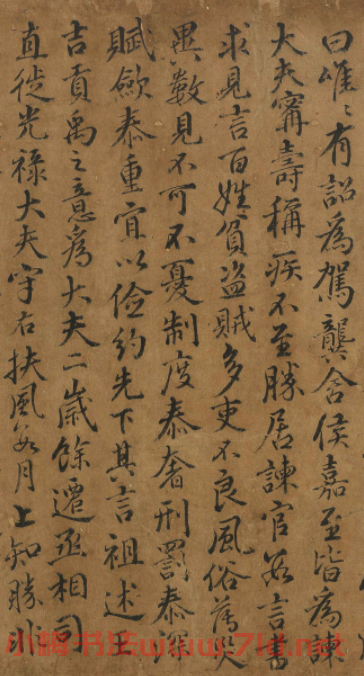 曰唯〻有詔為駕龔舍侯嘉至皆為諫
大夫甯壽稱疾不至勝居諫官數言事
求見言百姓貧盜賊多吏不良風俗薄災
異數見不可不憂制度泰奢刑罰泰深
賦斂泰重宜以儉約先下其言祖述王
吉貢禹之意為大夫二歲餘遷丞相司
直徙光祿大夫守右扶風數月上知勝非